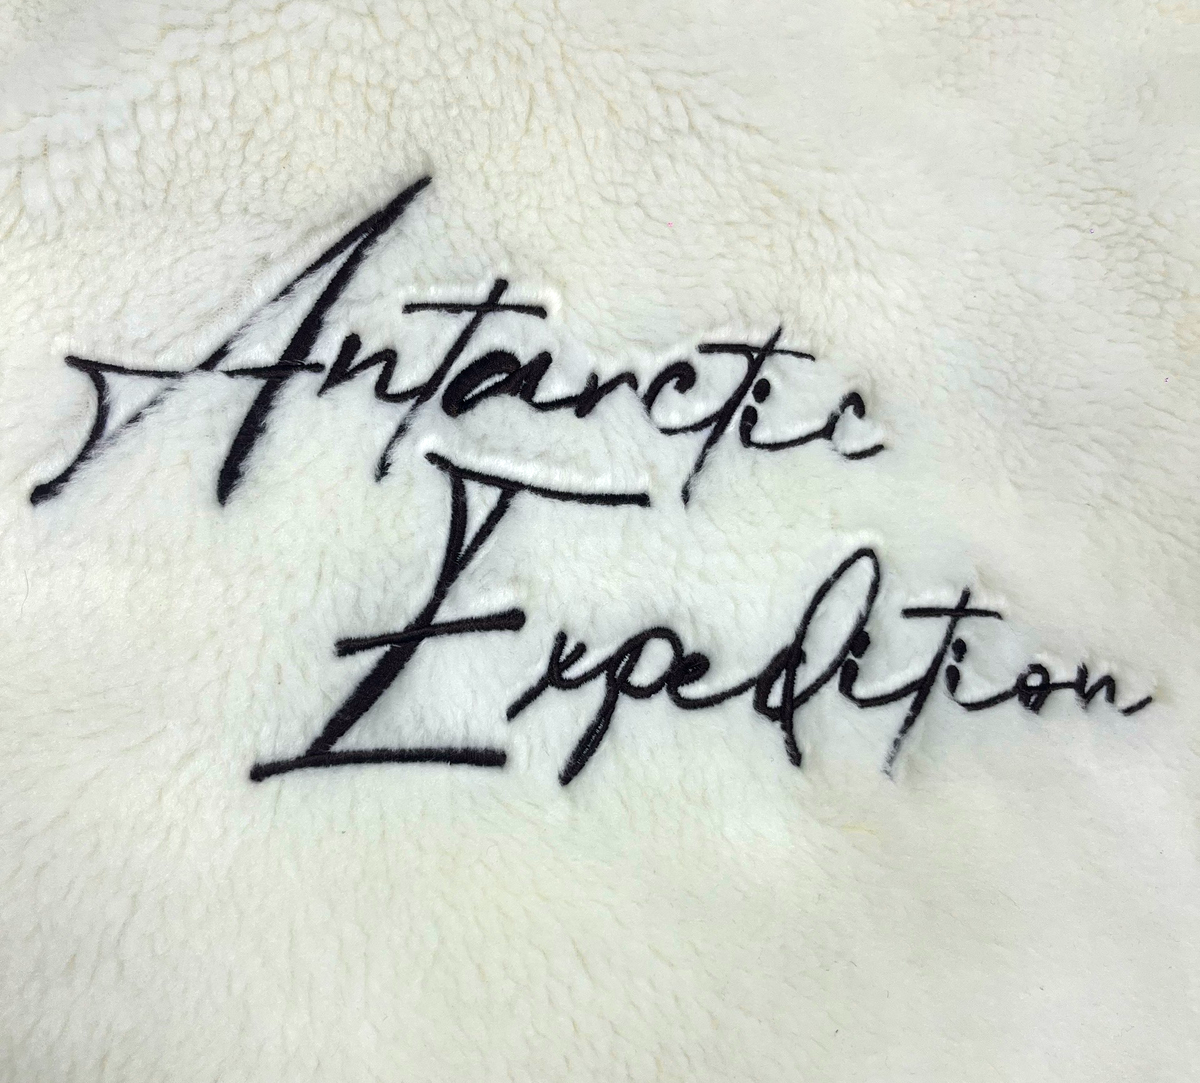 Antarctic
Expedition